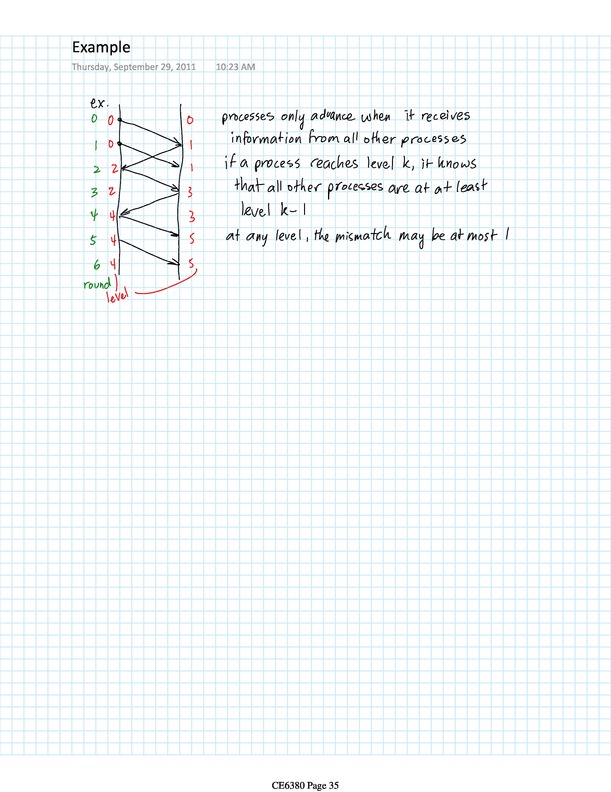 Example
Thursday, September 29, 2011 10:23 AM
ex.
0 0 0
1 0 1
2 2 1
3 2 3
4 4 3
5 4 5
6 4 5
round
level
processes only advance when it receives
information from all other processes
if a process reaches level k, it knows
that all other processes are at at least
level k-1
at any level, the mismatch may be at most 1
CE6380 Page 35